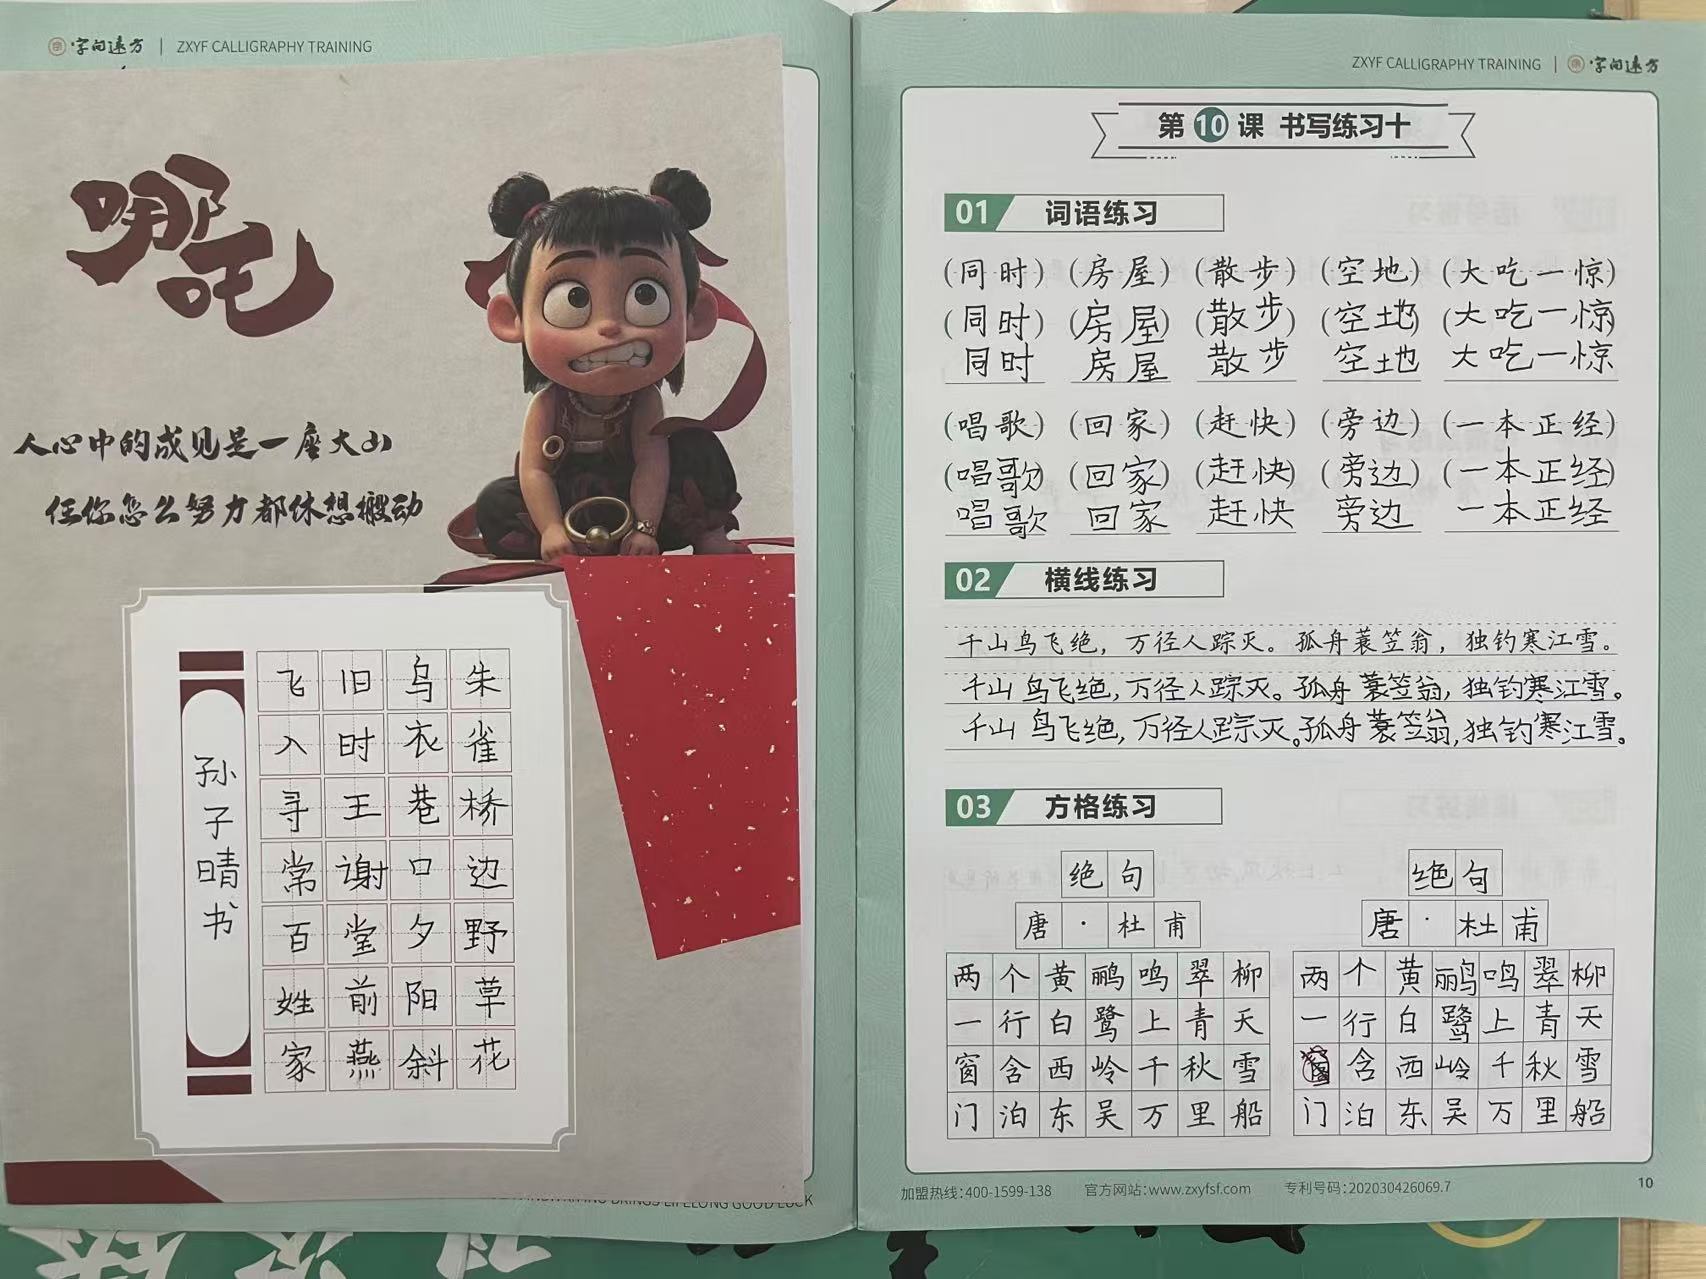 字间远方 | ZXYF CALLIGRAPHY TRAINING
哪吒
人心中的成见是一座大山
任你怎么努力都休想搬动
朱雀桥边野草花
乌衣巷口夕阳斜
旧时王谢堂前燕
飞入寻常百姓家
孙子晴书
ZXYF CALLIGRAPHY TRAINING | 字间远方
第10课 书写练习十
01 词语练习
(同时) (房屋) (散步) (空地) (大吃一惊)
(同时) (房屋) (散步) (空地) (大吃一惊)
同时 房屋 散步 空地 大吃一惊
(唱歌) (回家) (赶快) (旁边) (一本正经)
(唱歌) (回家) (赶快) (旁边) (一本正经)
唱歌 回家 赶快 旁边 一本正经
02 横线练习
千山鸟飞绝，万径人踪灭。孤舟蓑笠翁，独钓寒江雪。
千山鸟飞绝，万径人踪灭。孤舟蓑笠翁，独钓寒江雪。
千山鸟飞绝，万径人踪灭。孤舟蓑笠翁，独钓寒江雪。
03 方格练习
绝句
唐·杜甫
两个黄鹂鸣翠柳
一行白鹭上青天
窗含西岭千秋雪
门泊东吴万里船
绝句
唐·杜甫
两个黄鹂鸣翠柳
一行白鹭上青天
窗含西岭千秋雪
门泊东吴万里船
加盟热线：400-1599-138 官方网站：www.zxyfsf.com 专利号码：202030426069.7
10
LIFELONG GOOD LUCK